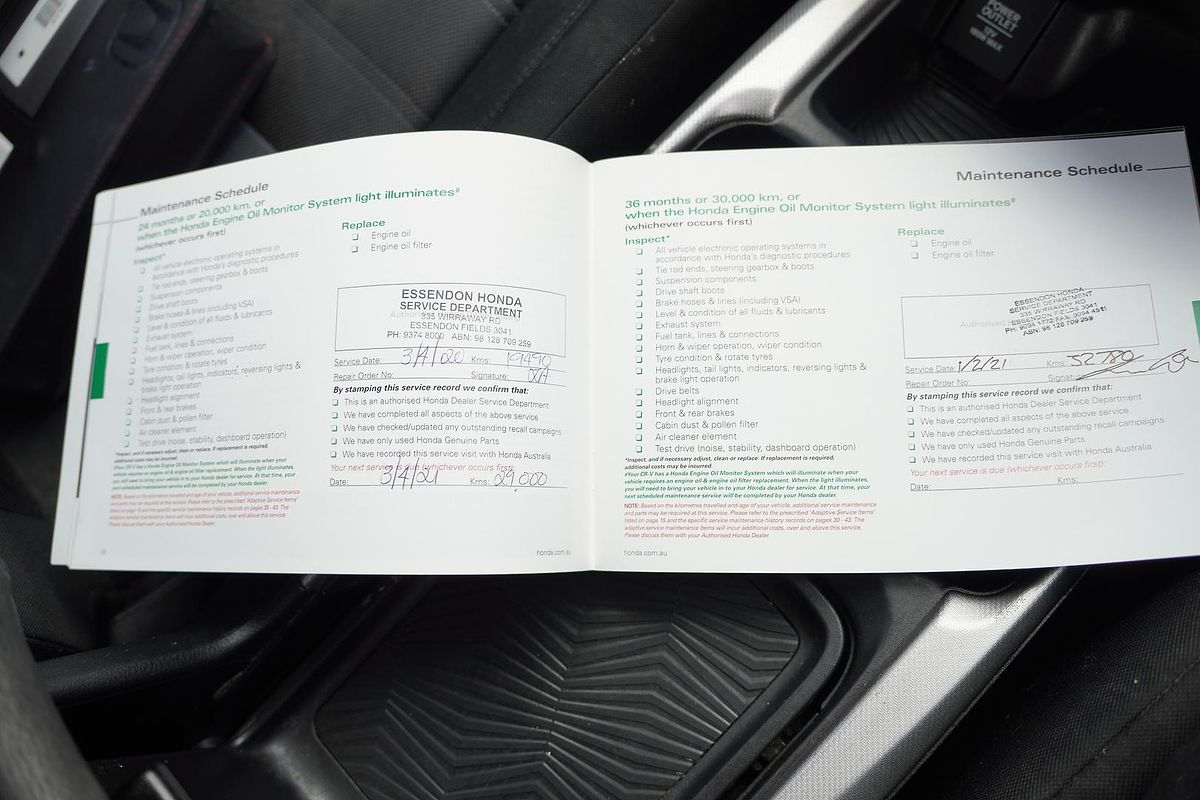 Maintenance Schedule
24 months or 20,000 km. or
when the Honda Engine Oil Monitor System light illuminates#
(whichever occurs first)
Inspect*
❏ All vehicle electronic operating systems in
accordance with Honda's diagnostic procedures
❏ Tie rod ends, steering gearbox & boots
❏ Suspension components
❏ Drive shaft boots
❏ Brake hoses & lines (including VSA)
❏ Level & condition of all fluids & lubricants
❏ Exhaust system
❏ Fuel tank, lines & connections
❏ Horn & wiper operation, wiper condition
❏ Tyre condition & rotate tyres
❏ Headlights, tail lights, indicators, reversing lights &
brake light operation
❏ Headlight alignment
❏ Front & rear brakes
❏ Cabin dust & pollen filter
❏ Air cleaner element
❏ Test drive (noise, stability, dashboard operation)
*Inspect, and if necessary adjust, clean or replace. If replacement is required,
additional costs may be incurred
#Your CR-V has a Honda Engine Oil Monitor System which will illuminate when your
vehicle requires an engine oil & engine oil filter replacement. When the light illuminates,
you will need to bring your vehicle in to your Honda dealer for service. At that time, your
next scheduled maintenance service will be completed by your Honda dealer.
NOTE: Based on the kilometres travelled and age of your vehicle, additional service maintenance
and parts may be required at this service. Please refer to the prescribed 'Adaptive Service Items'
listed on page 15 and the specific service maintenance history records on pages 30 - 43. The
adaptive service maintenance items will incur additional costs, over and above this service.
Please discuss them with your Authorised Honda Dealer.
Replace
❏ Engine oil
❏ Engine oil filter
ESSENDON HONDA
SERVICE DEPARTMENT
335 WIRRAWAY RD
ESSENDON FIELDS 3041
PH: 9374 8000 ABN: 98 128 709 259
Service Date: 3/4/20 Kms: 19490
Repair Order No: Signature:
By stamping this service record we confirm that:
❏ This is an authorised Honda Dealer Service Department
❏ We have completed all aspects of the above service
❏ We have checked/updated any outstanding recall campaigns
❏ We have only used Honda Genuine Parts
❏ We have recorded this service visit with Honda Australia
Your next service is due (whichever occurs first):
Date: 3/4/21 Kms: 29,000
honda.com.au
Maintenance Schedule
36 months or 30,000 km. or
when the Honda Engine Oil Monitor System light illuminates#
(whichever occurs first)
Inspect*
❏ All vehicle electronic operating systems in
accordance with Honda's diagnostic procedures
❏ Tie rod ends, steering gearbox & boots
❏ Suspension components
❏ Drive shaft boots
❏ Brake hoses & lines (including VSA)
❏ Level & condition of all fluids & lubricants
❏ Exhaust system
❏ Fuel tank, lines & connections
❏ Horn & wiper operation, wiper condition
❏ Tyre condition & rotate tyres
❏ Headlights, tail lights, indicators, reversing lights &
brake light operation
❏ Drive belts
❏ Headlight alignment
❏ Front & rear brakes
❏ Cabin dust & pollen filter
❏ Air cleaner element
❏ Test drive (noise, stability, dashboard operation)
*Inspect, and if necessary adjust, clean or replace. If replacement is required,
additional costs may be incurred
#Your CR-V has a Honda Engine Oil Monitor System which will illuminate when your
vehicle requires an engine oil & engine oil filter replacement. When the light illuminates,
you will need to bring your vehicle in to your Honda dealer for service. At that time, your
next scheduled maintenance service will be completed by your Honda dealer.
NOTE: Based on the kilometres travelled and age of your vehicle, additional service maintenance
and parts may be required at this service. Please refer to the prescribed 'Adaptive Service Items'
listed on page 15 and the specific service maintenance history records on pages 30 - 43. The
adaptive service maintenance items will incur additional costs, over and above this service.
Please discuss them with your Authorised Honda Dealer.
Replace
❏ Engine oil
❏ Engine oil filter
Authorised
ESSENDON HONDA
SERVICE DEPARTMENT
335 WIRRAWAY RD
ESSENDON FIELDS 3041
ABN: 98 128 709 259
Service Date: 1/2/21 Kms: 32780
Repair Order No:
By stamping this service record we confirm that:
❏ This is an authorised Honda Dealer Service Department
❏ We have completed all aspects of the above service
❏ We have checked/updated any outstanding recall campaigns
❏ We have only used Honda Genuine Parts
❏ We have recorded this service visit with Honda Australia
Your next service is due (whichever occurs first):
Date: Kms:
honda.com.au
POWER
OUTLET
12V
180W MAX